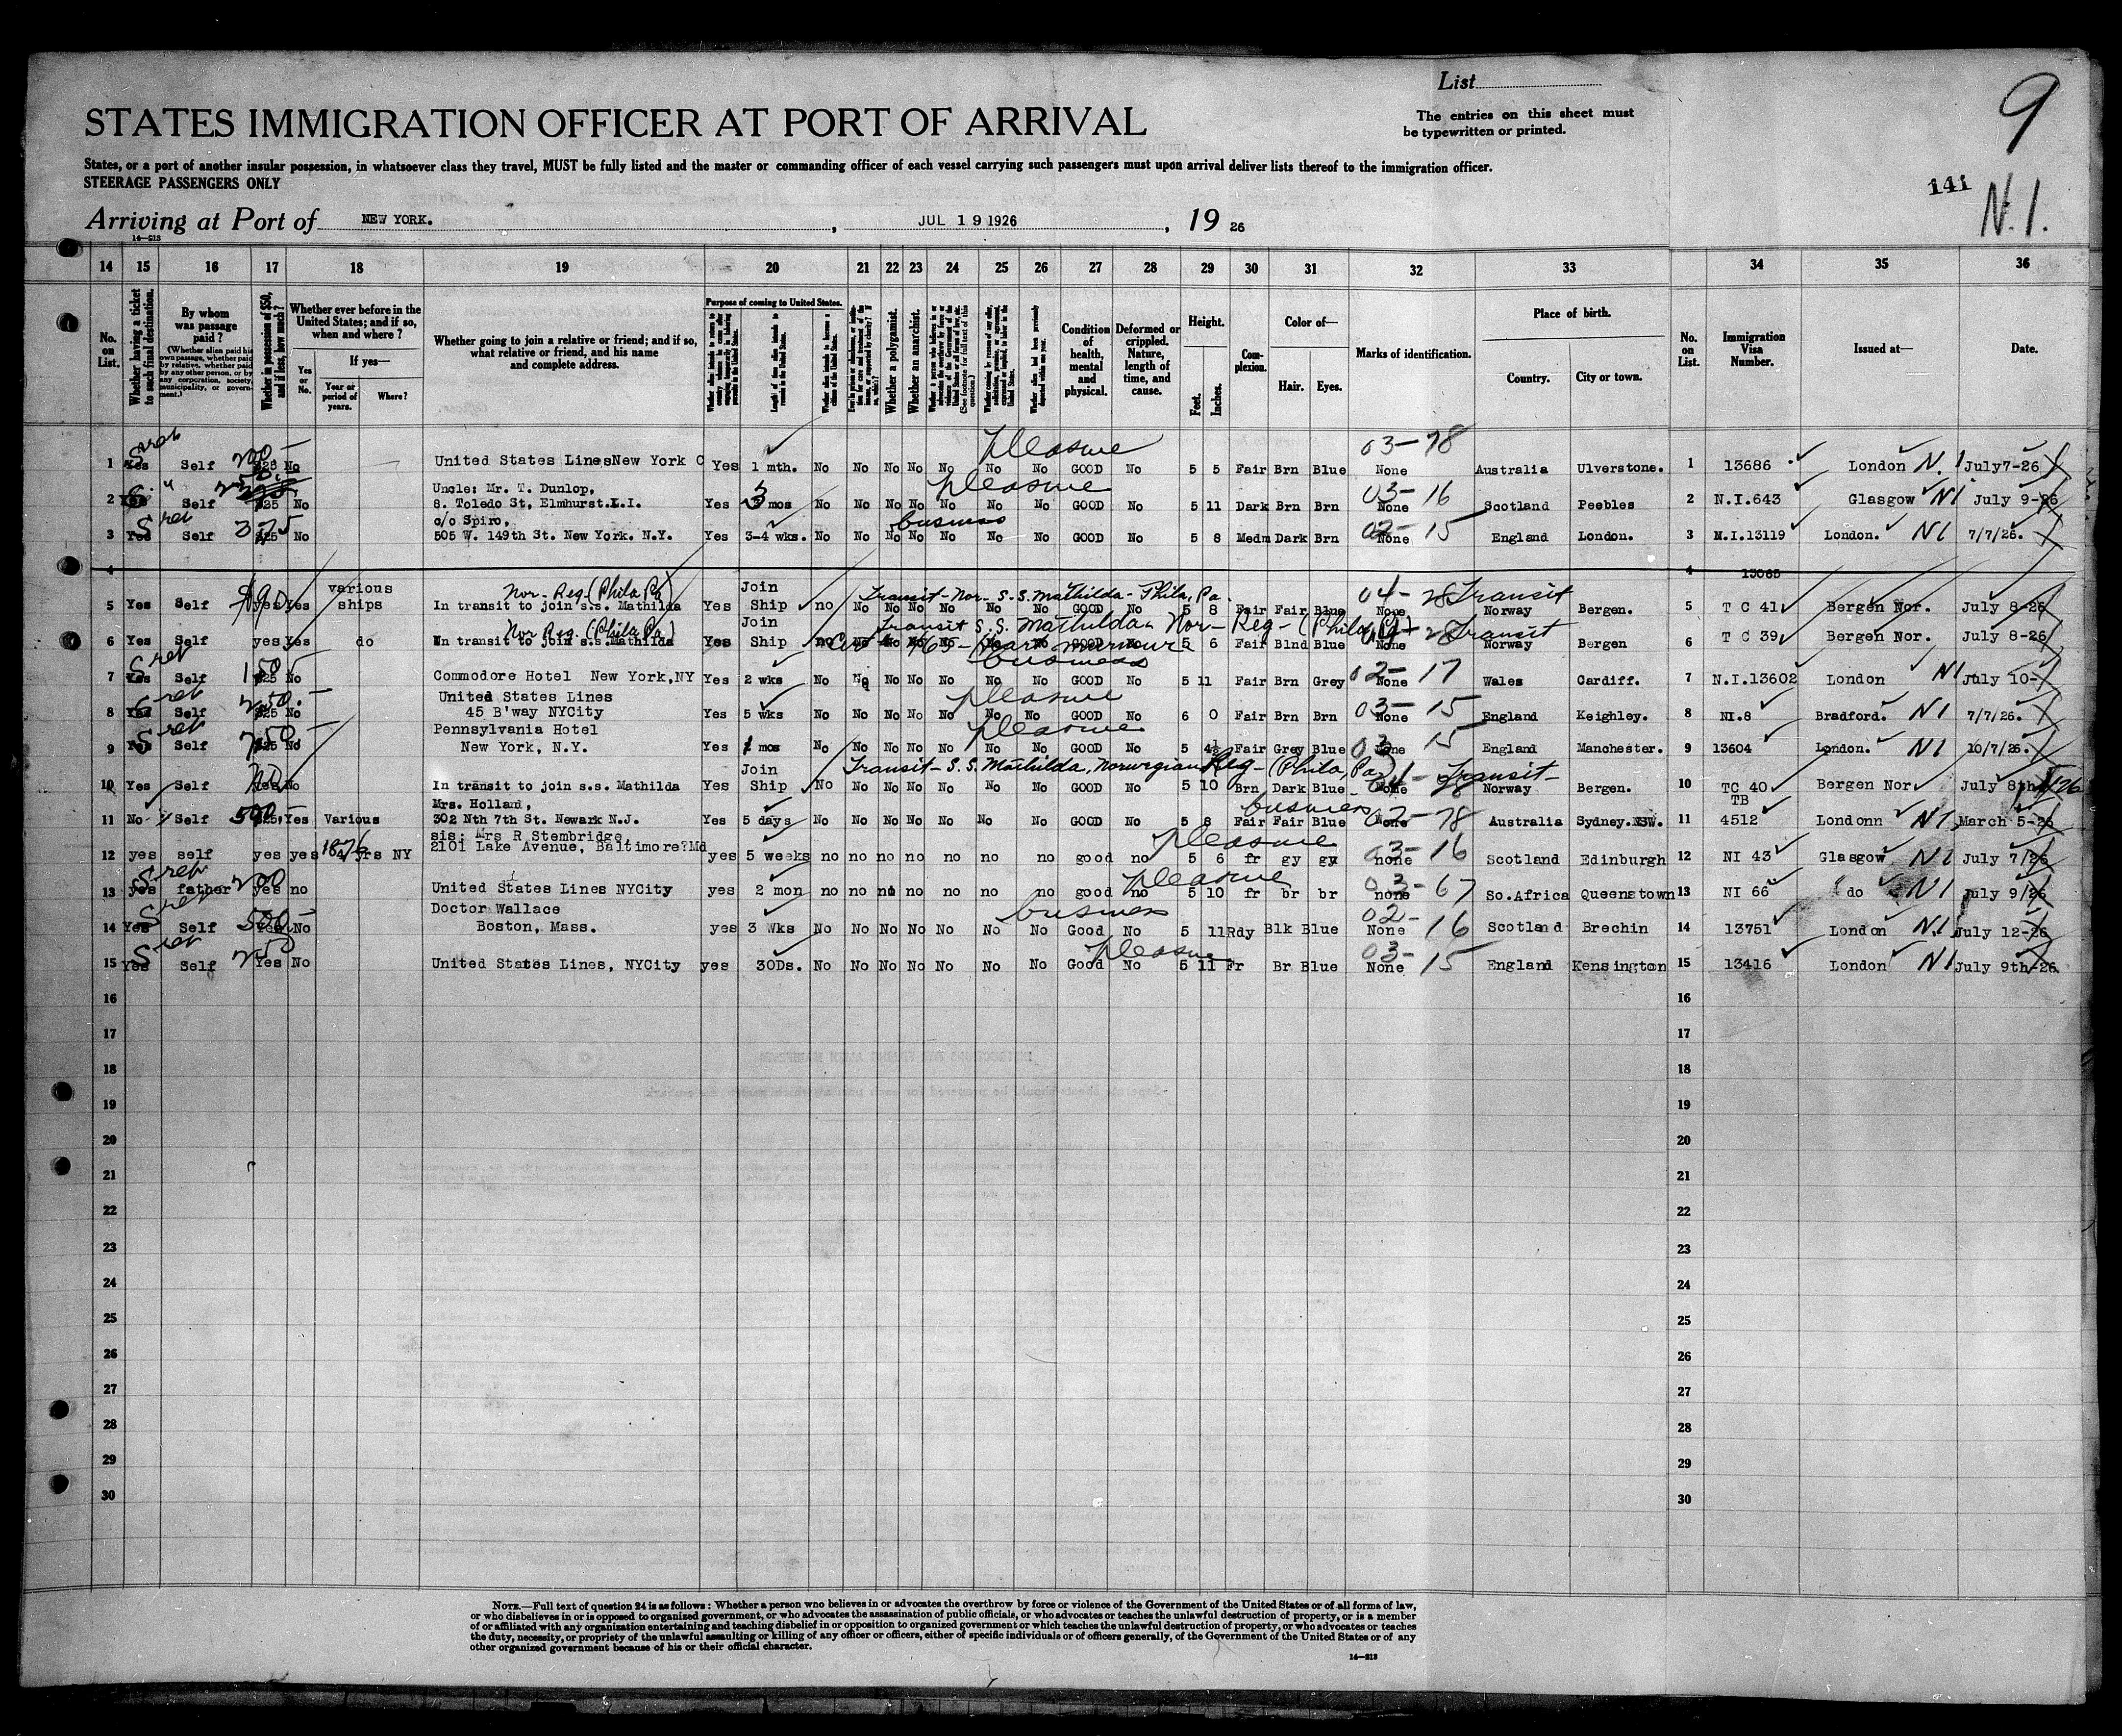 List
9
STATES IMMIGRATION OFFICER AT PORT OF ARRIVAL
The entries on this sheet must
be typewritten or printed.
States, or a port of another insular possession, in whatsoever class they travel, MUST be fully listed and the master or commanding officer of each vessel carrying such passengers must upon arrival deliver lists thereof to the immigration officer.
STEERAGE PASSENGERS ONLY
141
N.I.
Arriving at Port of NEW YORK. , JUL 19 1926 , 19 26
14—213
14 15 16 17 18 19 20 21 22 23 24 25 26 27 28 29 30 31 32 33 34 35 36
No. on List.
Whether having a ticket to such final destination.
By whom was passage paid?
(Whether alien paid his own passage, whether paid by relative, whether paid by any other person, or by any corporation, society, municipality, or government.)
Whether in possession of $50, and if less, how much?
Whether ever before in the United States; and if so, when and where?
Yes or No.
If yes—
Year or period of years.
Where?
Whether going to join a relative or friend; and if so, what relative or friend, and his name and complete address.
Purpose of coming to United States.
Length of time alien intends to remain in the United States.
Whether alien intends to become a citizen of the United States.
Whether a polygamist.
Whether an anarchist.
(See footnote for full text of this question.)
Condition of health, mental and physical.
Deformed or crippled. Nature, length of time, and cause.
Height.
Feet.
Inches.
Complexion.
Color of—
Hair.
Eyes.
Marks of identification.
Place of birth.
Country.
City or town.
No. on List.
Immigration Visa Number.
Issued at—
Date.
pleasure 03—78
1 Yes Self 200— $25 No United States Lines New York C Yes 1 mth. No No No No No No No GOOD No 5 5 Fair Brn Blue None Australia Ulverstone. 1 13686 London N.I July7-26
Uncle: Mr. T. Dunlop, pleasure 03—16
2 Yes Self $25 No 8. Toledo St, Elmhurst.L.I. Yes 3 mos No No No No No No No GOOD No 5 11 Dark Brn Brn None Scotland Peebles 2 N.I.643 Glasgow NI July 9-26
c/o Spiro, business 02—15
3 Yes Self 375 $25 No 505 W. 149th St. New York. N.Y. Yes 3-4 wks. No No No No No No No GOOD No 5 8 Medm Dark Brn None England London. 3 N.I.13119 London. NI 7/7/26.
4 4 13085
various Nor-Reg-(Phila Pa) Join Transit-Nor-S.S. Mathilda-Phila, Pa. 04—28 Transit
5 Yes Self $90 yes Yes ships In transit to join s.s. Mathilda Yes Ship no No No No No No No GOOD No 5 8 Fair Fair Blue None Norway Bergen. 5 T C 41 Bergen Nor. July 8-26
Nor Reg-(Phila Pa) Join Transit S.S. Mathilda Nor-Reg-(Phila Pa) 04—28 Transit
6 Yes Self yes Yes do In transit to join s.s. Mathilda Yes Ship no No No No No GOOD No 5 6 Fair Blnd Blue None Norway Bergen 6 T C 39 Bergen Nor. July 8-26
business 02—17
7 Yes Self 150— $25 No Commodore Hotel New York,NY Yes 2 wks No No No No No No No GOOD No 5 11 Fair Brn Grey None Wales Cardiff. 7 N.I.13602 London NI July 10-
United States Lines pleasure 03—15
8 Yes Self 250.— $25 No 45 B'way NYCity Yes 5 wks No No No No No No No GOOD No 6 0 Fair Brn Brn None England Keighley. 8 NI.8 Bradford. NI 7/7/26.
Pennsylvania Hotel pleasure 03 15
9 Yes Self 750— $25 No New York, N.Y. Yes mos No No No No No No No GOOD No 5 4½ Fair Grey Blue None England Manchester. 9 13604 London. NI 10/7/26.
Join Transit-S.S. Mathilda, Norwegian Reg-(Phila, Pa) 04—28 Transit—
10 Yes Self Yes No In transit to join s.s. Mathilda Yes Ship No No No No No No No GOOD No 5 10 Brn Dark Blue None Norway Bergen. 10 TC 40 Bergen Nor July 8th 1926
Mrs. Holland, business 02—78 TB
11 No Self 500.— $25, Yes Various 302 Nth 7th St. Newark N.J. Yes 5 days No No No No No No No GOOD No 5 8 Fair Fair Blue None Australia Sydney.NSW. 11 4512 Londonn NI March 5-26
sis: Mrs R Stembridge pleasure 03—16
12 yes self yes yes 1876 yrs NY 2101 Lake Avenue, Baltimore?Md yes 5 weeks no no no no no no no good no 5 6 fr gy gy none Scotland Edinburgh 12 NI 43 Glasgow NI July 7/26
pleasure 03—67
13 yes father 200 yes no United States Lines NYCity yes 2 mon no no no no no no no good no 5 10 fr br br none So.Africa Queenstown 13 NI 66 do NI July 9/26
Doctor Wallace business 02—16
14 Yes Self 500— Yes No Boston, Mass. yes 3 Wks No No No No No No No Good No 5 11 Rdy Blk Blue None Scotland Brechin 14 13751 London N.I July 12-26
pleasure 03—15
15 Yes Self 250 Yes No United States Lines, NYCity yes 30Ds. No No No No No No No Good No 5 11 Fr Br Blue None England Kensington 15 13416 London NI July 9th-26
16 16
17 17
18 18
19 19
20 20
21 21
22 22
23 23
24 24
25 25
26 26
27 27
28 28
29 29
30 30
NOTE.—Full text of question 24 is as follows: Whether a person who believes in or advocates the overthrow by force or violence of the Government of the United States or of all forms of law,
or who disbelieves in or is opposed to organized government, or who advocates the assassination of public officials, or who advocates or teaches the unlawful destruction of property, or is a member
of or affiliated with any organization entertaining and teaching disbelief in or opposition to organized government or which teaches the unlawful destruction of property, or who advocates or teaches
the duty, necessity, or propriety of the unlawful assaulting or killing of any officer or officers, either of specific individuals or of officers generally, of the Government of the United States or of any
other organized government because of his or their official character.
14—213